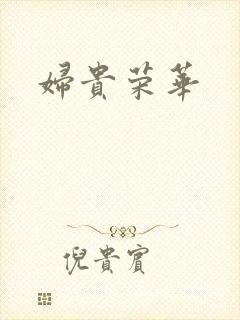 婦貴荣華
倪貴賓